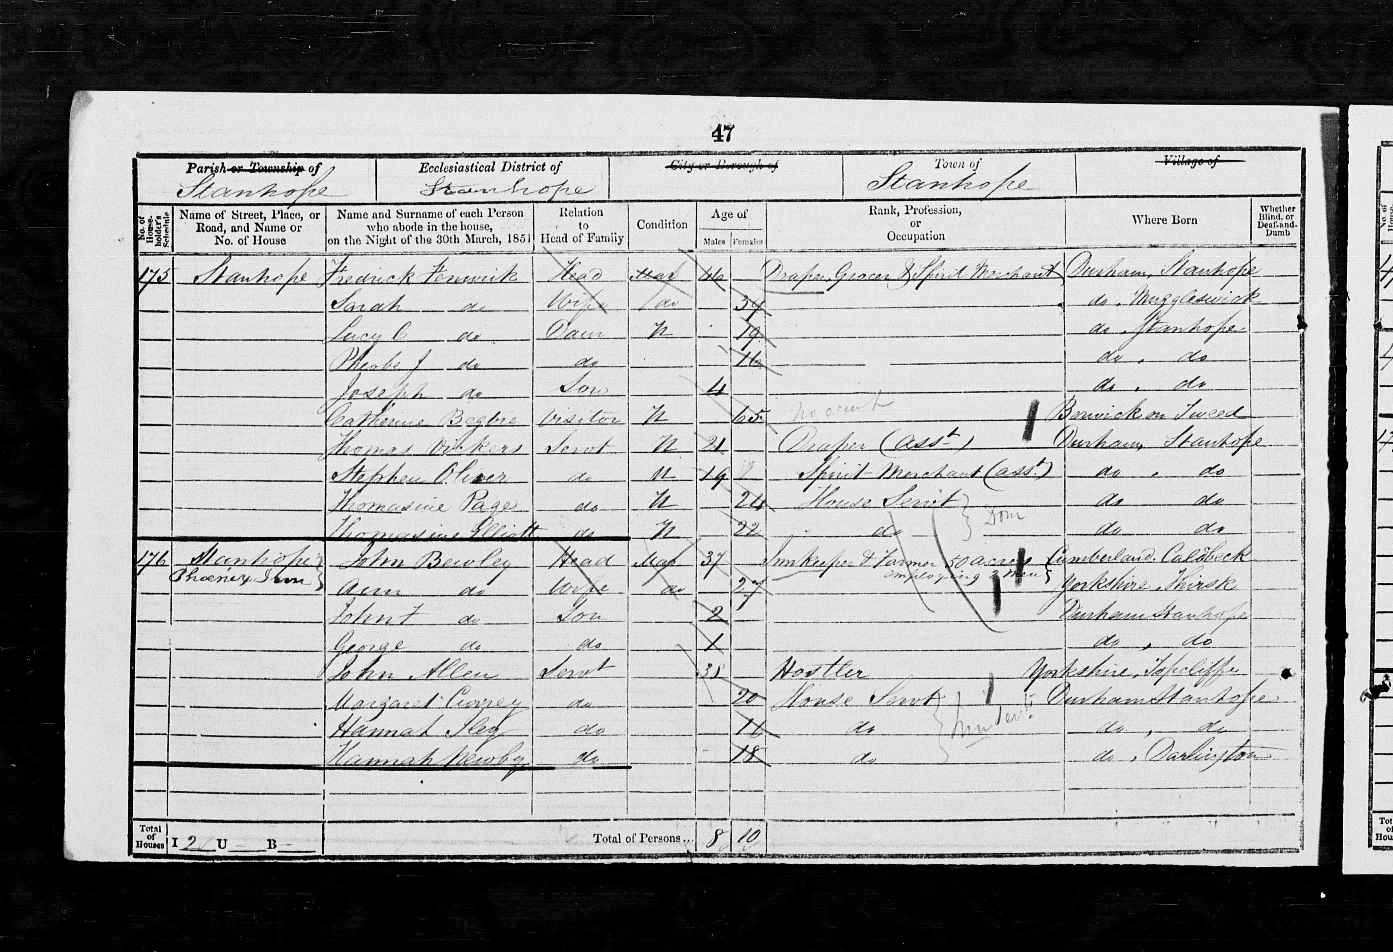 47
Parish or Township of Ecclesiastical District of City or Borough of Town of Village of
Stanhope Stanhope Stanhope
No. of House-holder's Schedule Name of Street, Place, or Road, and Name or No. of House Name and Surname of each Person who abode in the house, on the Night of the 30th March, 1851 Relation to Head of Family Condition Age of Males Females Rank, Profession, or Occupation Where Born Whether Blind, or Deaf-and-Dumb
175 Stanhope Fredrick Fenwick Head Mar Draper, Grocer & Spirit Merchant Durham, Stanhope
Sarah do Wife do 39 do, Muggleswick
Lucy C do Daur U 19 do, Stanhope
Pheobe J do do 16 do, do
Joseph do Son 4 do, do
Catherine Begbie Visitor U 65 Berwick on Tweed
Thomas Vickers Servt U 21 Draper (Asst) Durham, Stanhope
Stephen Oliver do U 19 Spirit Merchant (asst) do, do
Thomasine Page do U 24 House Servt do do
Thomasine Elliott do U 22 do Dom do do
176 Stanhope John Bewley Head Mar 37 Innkeeper & Farmer 50 acres Cumberland Caldbeck
Phoenix Inn employing 2 men
Ann do Wife do 27 Yorkshire, Thirsk
John T do Son 2 Durham Stanhope
George do do 1 do, do
John Allen Servt 38 Hostler Yorkshire, Topcliffe
Margaret Currey do 20 House Servt Durham Stanhope
Hannah do 16 do do, do
Hannah Newby do 18 do do, Darlington
Total of Houses I 2 U B Total of Persons... 8 10